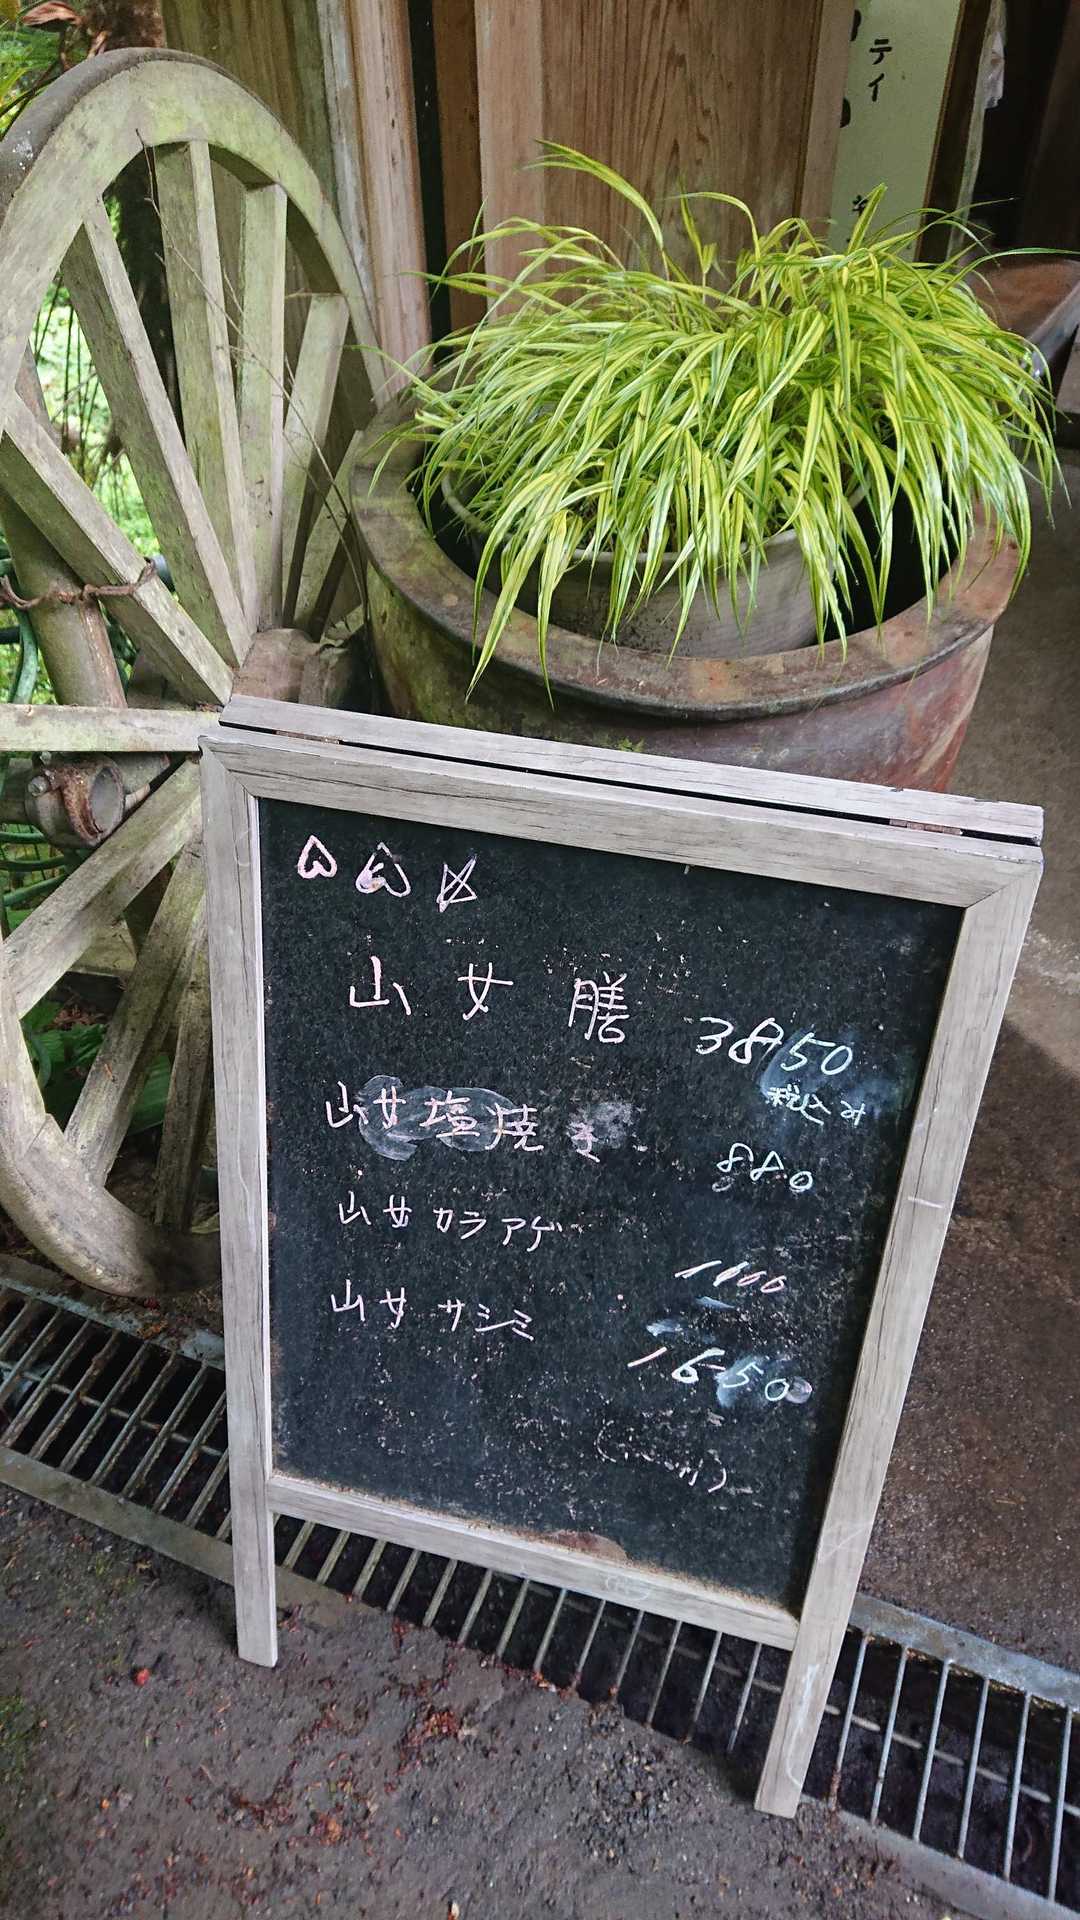 ティ
山女膳 3850
税込み
山女塩焼き 880
山女カラアゲ 1100
山女サシミ 1650